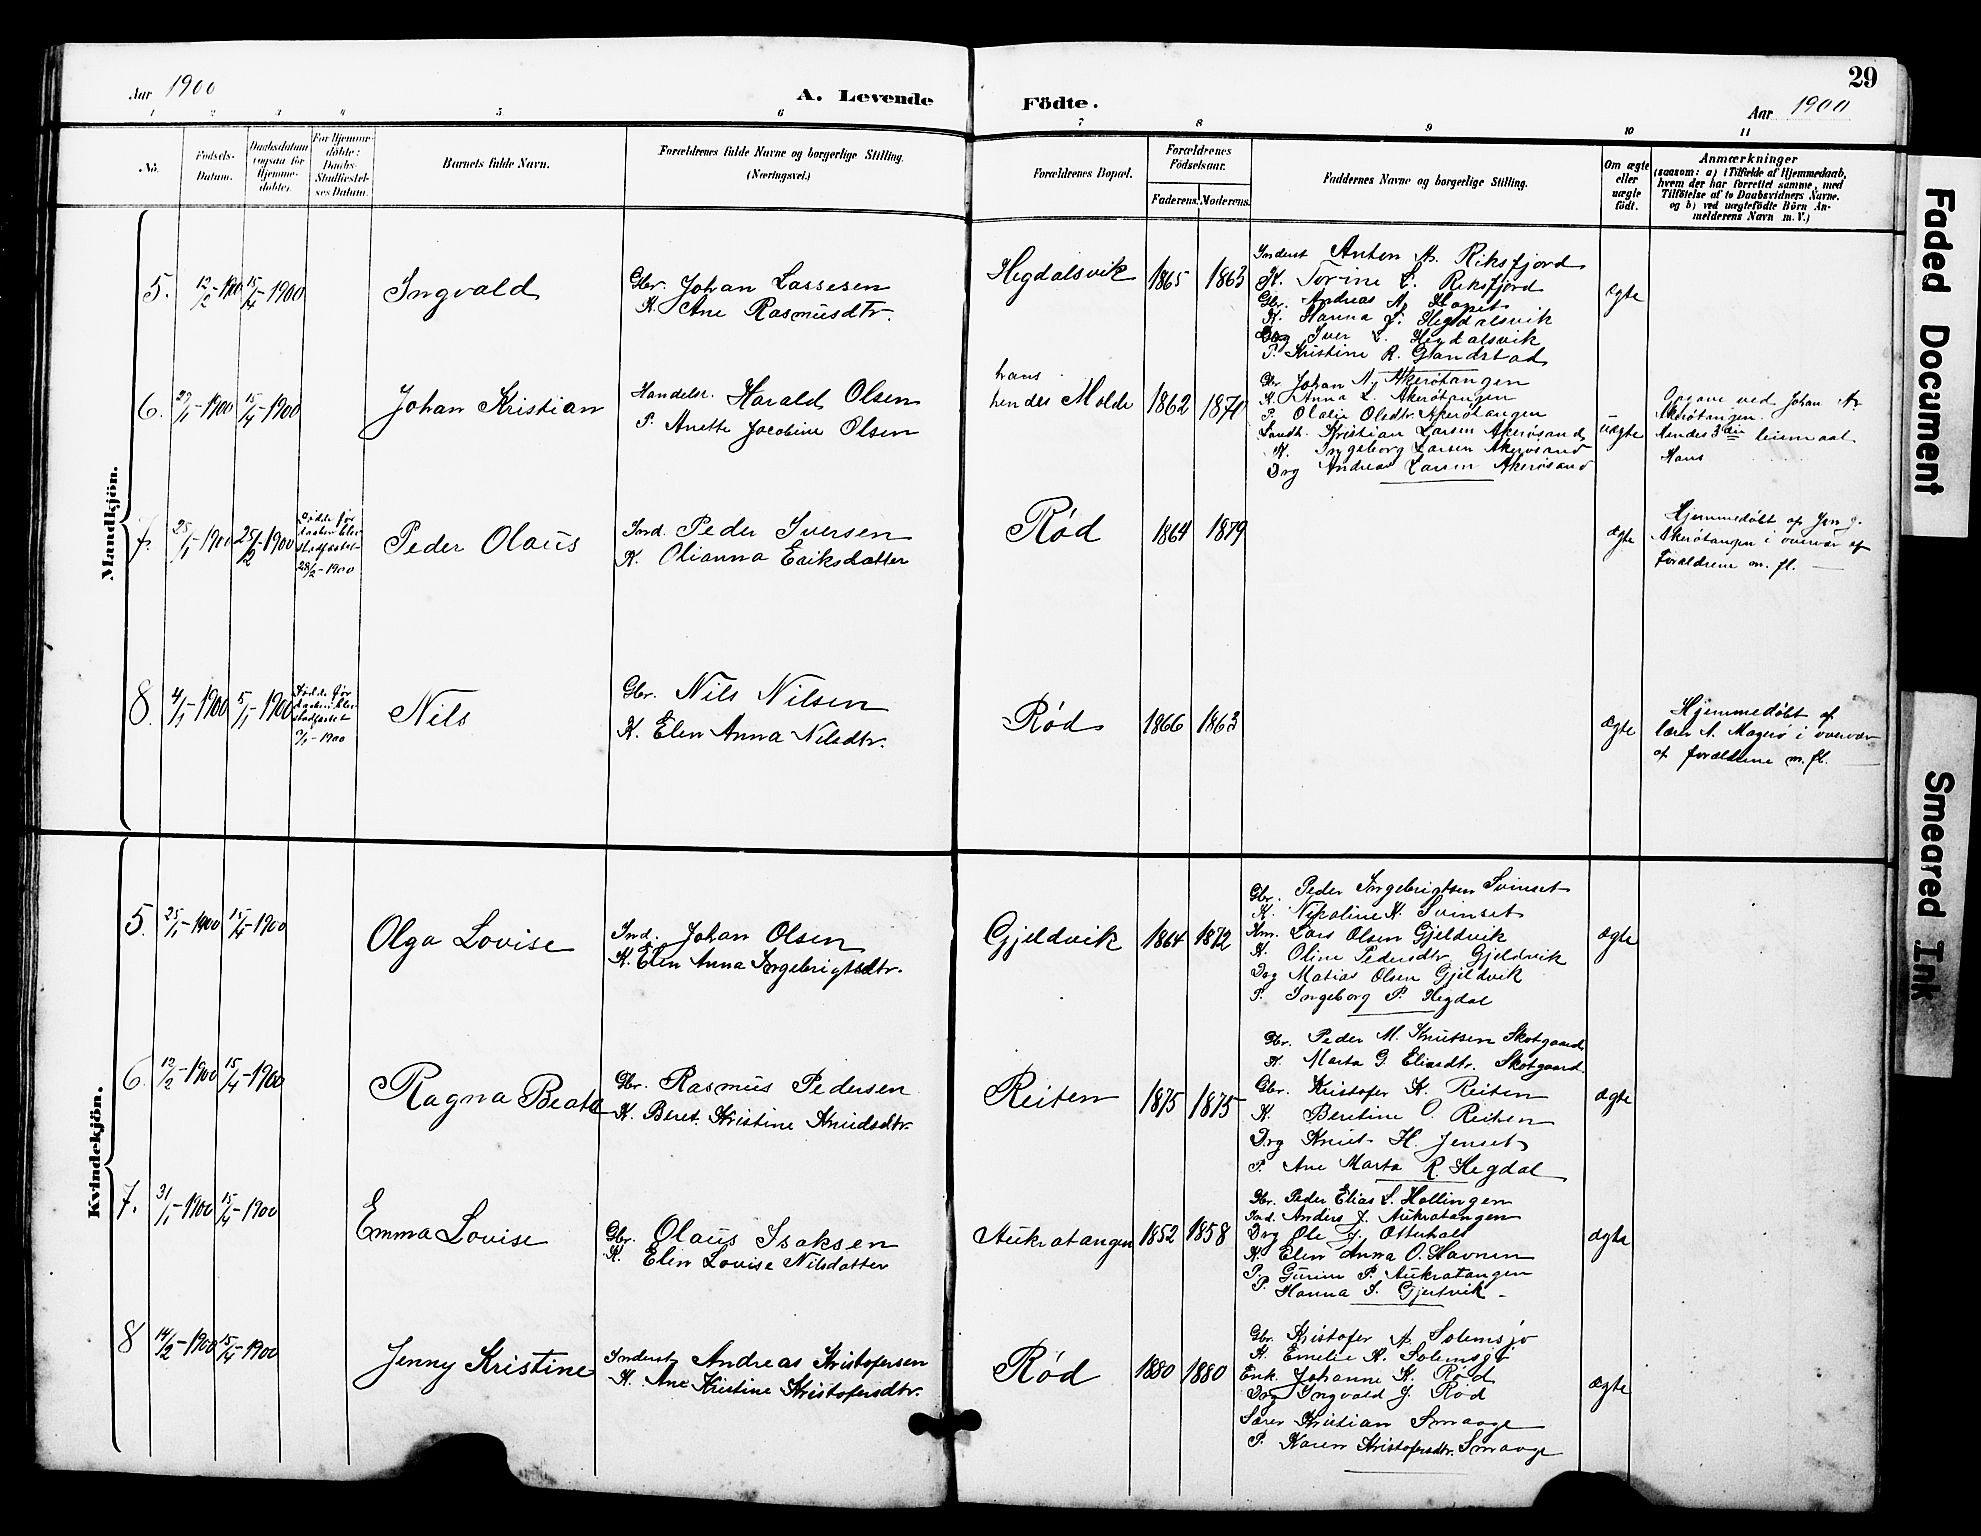 29
Aar 1900
A. Levende
Födte.
Aar 1900
1 2 3 4 5 6 7 8 9 10 11
No.
Fødsels-
Datum.
Daabsdatum
(ogsaa for
Hjemme-
døbte).
For Hjemme-
døbte:
Daabs-
Stadfæstel-
ses Datum.
Barnets fulde Navn.
Forældrenes fulde Navne og borgerlige Stilling.
(Næringsvei.)
Forældrenes Bopæl.
Forældrenes
Födselsaar.
Faderens. Moderens.
Faddernes Navne og borgerlige Stilling.
Om ægte
eller
uægte
født.
Anmærkninger
(saasom: a) i Tilfælde af Hjemmedaab,
hvem der har forrettet samme, med
Tilføielse af to Daabsvidners Navne.
og b) ved uægtefødte Börn An-
melderens Navn m. V.)
Mandkjön.
5. 12/2-1900 15/4-1900
Ingvald
Gbr. Johan Lassesen
K. Ane Rasmusdtr.
Hegdalsvik
1865 1863
Inderst Anton A. Riksfjord
K. Torine L. Riksfjord
Gbr. Andreas A. Hopet
K. Hanna J. Hegdalsvik
Ung Iver L. Hegdalsvik
P. Kristine R. Grandstad
ægte
6. 27/1-1900 15/4-1900
Johan Kristian
Handelsr. Harald Olsen
P. Anette Jacobine Olsen
hans
hendes Molde
1862 1871
Gbr. Johan A. Akerøtangen
K. Anna L. Akerøtangen
P. Olalie Olsdtr. Akerøtangen
Landh. Kristian Larsen Akerøsand
K. Ingeborg Larsen Akerøsand
Ung Andreas Larsen Akerøsand
uægte
Opgave ved Johan A.
Akerøtangen.
Hendes 3die leiermaal
Hans
7. 25/1-1900 25/2-1900
28/2-1900
Peder Olaus
Ind. Peder Iversen
K. Olianna Eriksdatter
Rød
1864 1879
ægte
Hjemmedøbt af Jon J.
Akerøtangen i overvær af
forældrene m. fl.
8. 4/1-1900 5/1-1900
Nils
Gbr. Nils Nilsen
K. Elen Anna Nilsdtr.
Rød
1866 1863
ægte
Hjemmedøbt af
lærer A. Magerø i overvær
af forældrene m. fl.
Kvindekjön.
5. 25/1-1900 15/4-1900
Olga Lovise
Ind. Johan Olsen
K. Elen Anna Ingebrigtsdtr.
Gjeldvik
1864 1872
Gbr. Peder Ingebrigtsen Svinset
K. Nikoline K. Svinset
Km. Lars Olsen Gjeldvik
K. Oline Pedersdtr. Gjeldvik
Ung Matias Olsen Gjeldvik
P. Ingeborg P. Hegdal
ægte
6. 12/2-1900 15/4-1900
Ragna Beate
Gbr. Rasmus Pedersen
K. Beret Kristine Knudsdtr.
Reiten
1875 1875
Gbr. Peder M. Knutsen Skotgaard.
K. Marta G. Eliasdtr. Skotgaard.
Gbr. Kristofer K. Reiten
K. Beretine O. Reiten
Ung Knut H. Jenset
P. Ane Marta R. Hegdal
ægte
7. 31/1-1900 15/4-1900
Emma Lovise
Gbr. Olaus Isaksen
K. Elen Lovise Nilsdatter
Aukratangen
1852 1858
Gbr. Peder Elias L. Hollingen
Ind. Anders J. Aukratangen
Ung Ole J. Otterhals
K. Elen Anna O. Havnen
P. Gurine P. Aukratangen
P. Hanna I. Gjertvik
ægte
8 14/2-1900 15/4-1900
Jenny Kristine
Inderst Andreas Kristofersen
K. Ane Kristine Kristofersdtr.
Rød
1880 1880
Gbr. Kristofer A. Solemsjø
K. Emelie K. Solemsjø
Enk. Johanne K. Rød
Ung Ingvald J. Rød
Lærer Kristian Smaage
P. Karen Kristofersdtr. Smaage
ægte
Faded Document
Smeared Ink